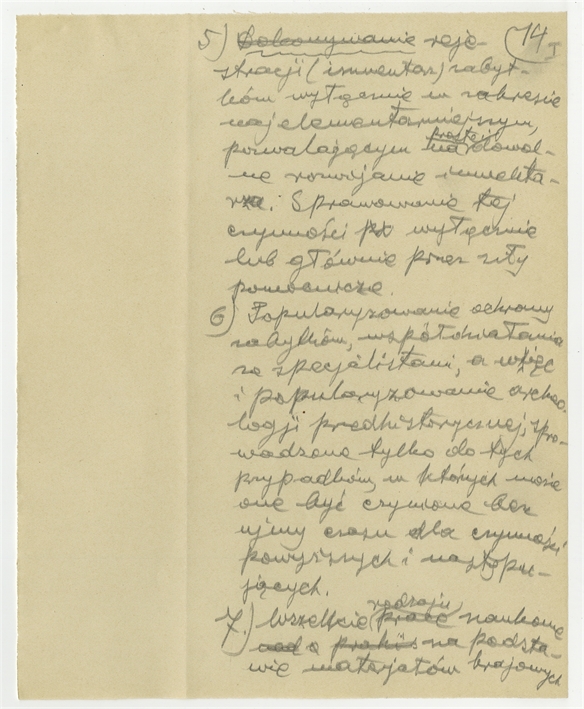 14
5) Dokonywanie reje-
stracji (inwentarz) zabyt-
ków wyłącznie w zakresie
najelementarniejszym,
prostej
pozwalającym na dowol-
ne rozwijanie inwenta-
rza. Sprawowanie tej
czynności wyłącznie
lub głównie przez siły
pomocnicze.
6) Popularyzowanie ochrony
zabytków, współdziałania
ze specjalistami, a więc
i popularyzowanie archeo-
logji predhistorycznej, spro-
wadzone tylko do tych
przypadków, w których może
one być czynione bez
ujmy czasu dla czynności
powyższych i następu-
jących.
rodzaju
7.) Wszelkie prace naukowe
na podsta-
wie materjałów krajowych